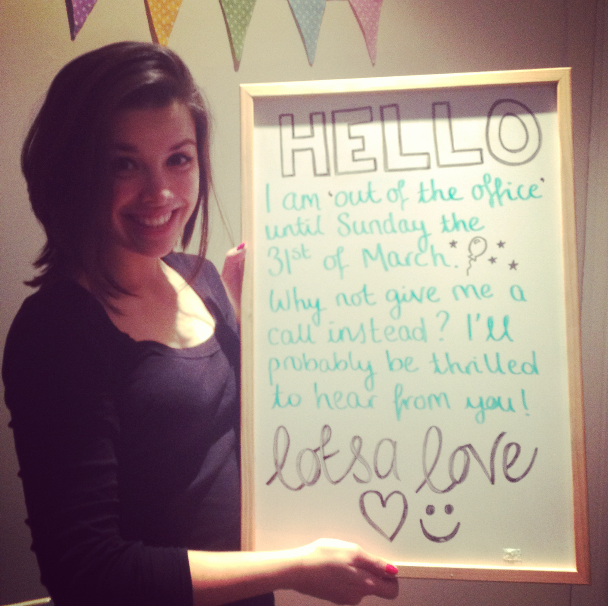 HELLO
I am 'out of the office'
until Sunday the
31st of March.
Why not give me a
call instead? I'll
probably be thrilled
to hear from you!
lotsa love